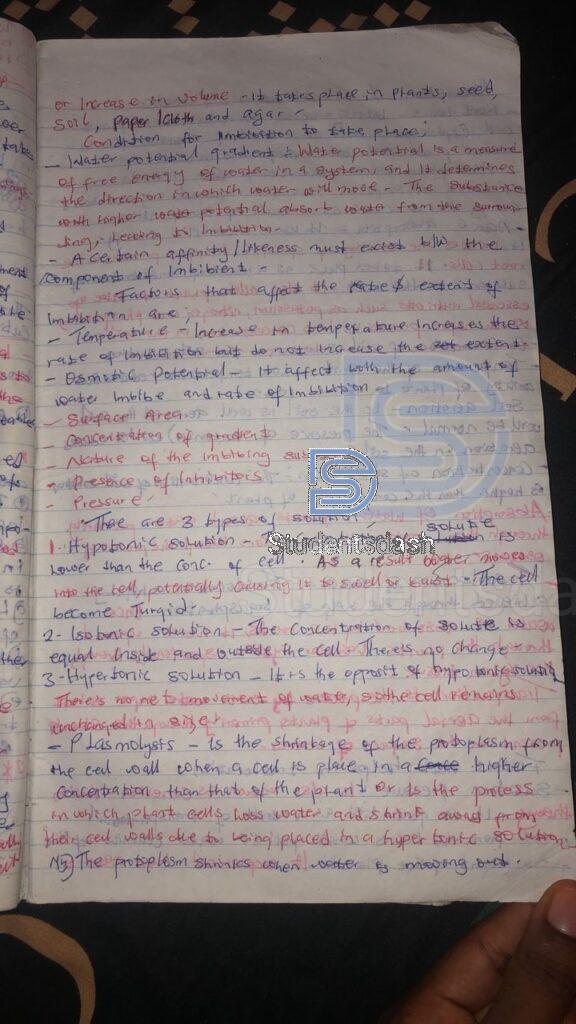 or Increase in volume - It takes place in plants, seed,
Soil, paper/cloth and agar.
Condition for imbibition to take place;
- Water potential gradient : Water potential is a measure
of free energy of water in a system, and it determines
the direction in which water will move - The substance
with higher water potential absorb water from the surroun-
ding, leading to Imbibition.
- A certain affinity/likeness must exist b/w the
component of Imbibient.
Factors that affect the rate & extent of
Imbibition are;
- Temperature - Increase in temperature Increases the
rate of imbibition but do not increase the extent.
- Osmotic Potential - It affect both the amount of
water Imbibe and rate of Imbibition
- Surface Area
- Concentration of gradient
- Nature of the imbibing sub
- Presence of Inhibitors
- Pressure.
Thee are 3 types of solution,
solute
1. Hypotonic solution - is
Studentsdash
lower than the conc. of cell. As a result water moves
into the cell, potentially causing it to swell or burst - The cell
become Turgid.
2- Isotonic solution - The Concentration of solute is
equal inside and outside the cell. There's no change
3- Hypertonic solution - It is the opposit of hypotonic solution
There's no net movement of water, so the cell remains
unchanged in size.
- Plasmolysis - Is the shrinkage of the protoplasm from
the cell wall when a cell is place in a higher
Concentration than that of the plant or Is the process
in which plant cells loss water and shrink away from
their cell walls due to being placed in a hypertonic solution.
NB) The protoplasm shrinks when water is moving out.